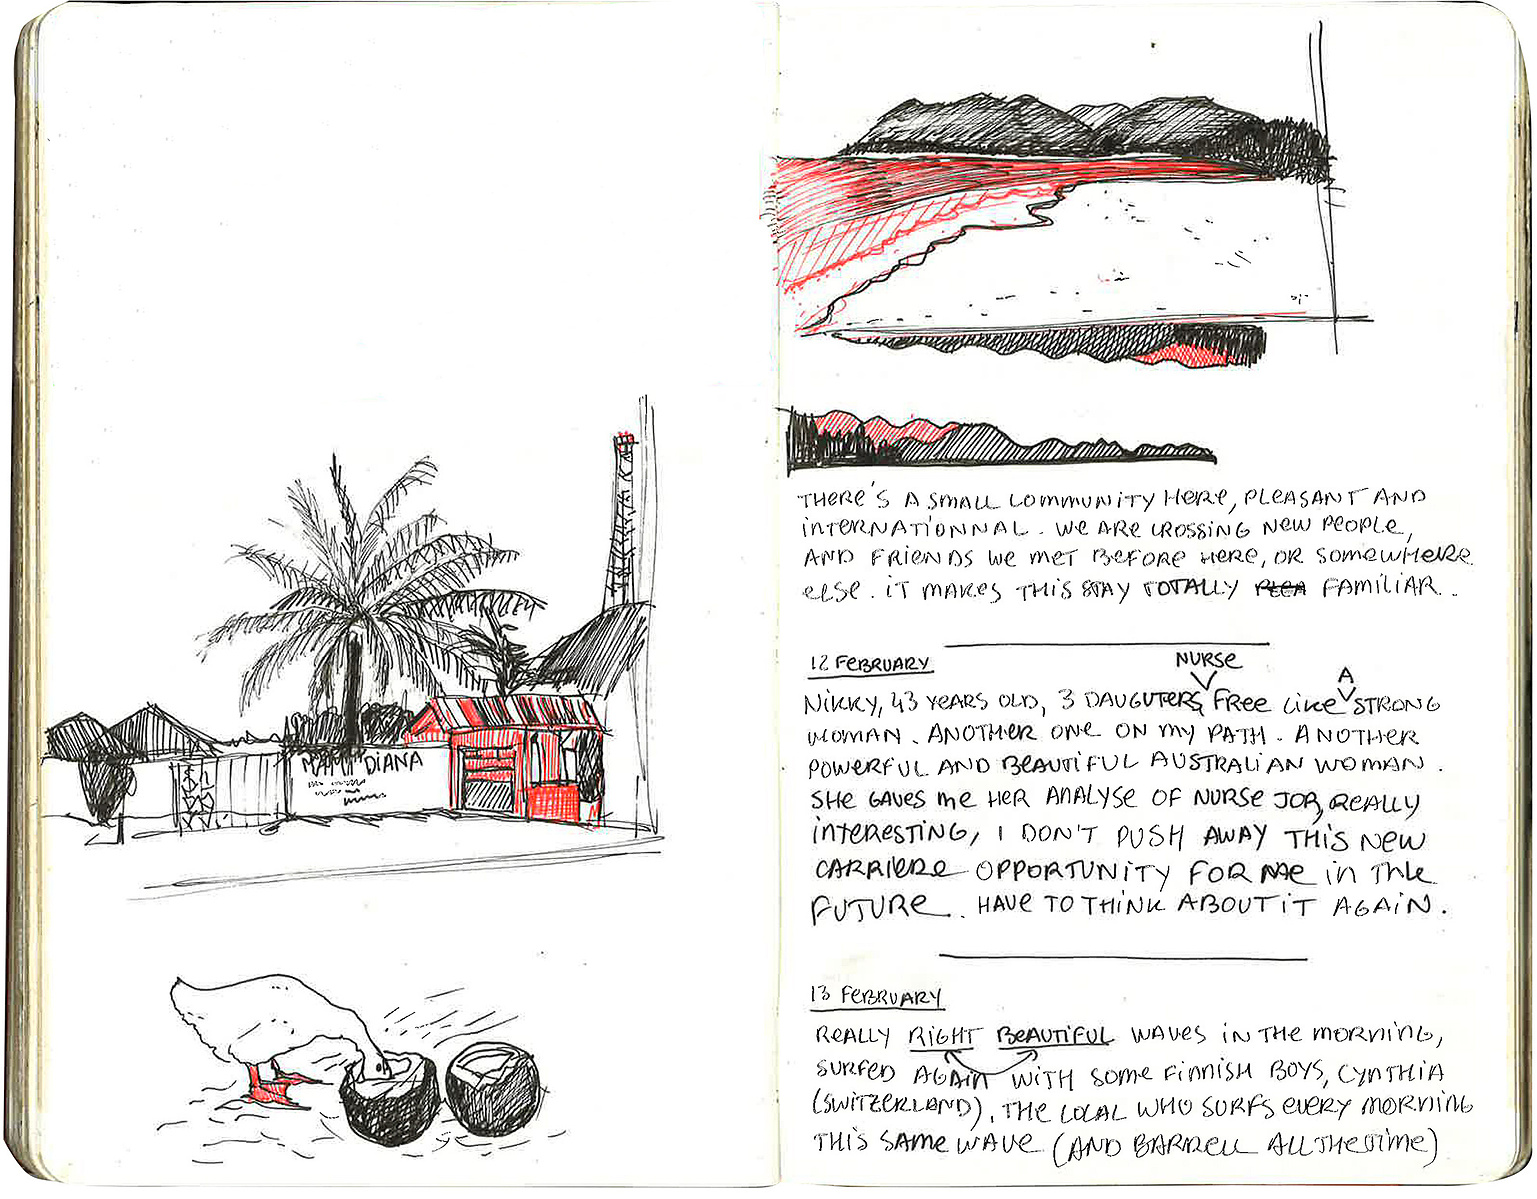 MAMI DIANA
THERE'S A SMALL COMMUNITY HERE, PLEASANT AND
INTERNATIONNAL. WE ARE CROSSING NEW PEOPLE,
AND FRIENDS WE MET BEFORE HERE, OR SOMEWHERE
ELSE. IT MAKES THIS STAY TOTALLY FAMILIAR.
12 FEBRUARY
NURSE
A
NIKKY, 43 YEARS OLD, 3 DAUGUTERS, FREE LIKE STRONG
WOMAN. ANOTHER ONE ON MY PATH. ANOTHER
POWERFUL AND BEAUTIFUL AUSTRALIAN WOMAN.
SHE GAVES ME HER ANALYSE OF NURSE JOB, REALLY
INTERESTING, I DON'T PUSH AWAY THIS NEW
CARRIERE OPPORTUNITY FOR ME IN THE
FUTURE. HAVE TO THINK ABOUT IT AGAIN.
13 FEBRUARY
REALLY RIGHT BEAUTIFUL WAVES IN THE MORNING,
SURFED AGAIN WITH SOME FINNISH BOYS, CYNTHIA
(SWITZERLAND), THE LOCAL WHO SURFS EVERY MORNING
THIS SAME WAVE (AND BARRELL ALL THE TIME)